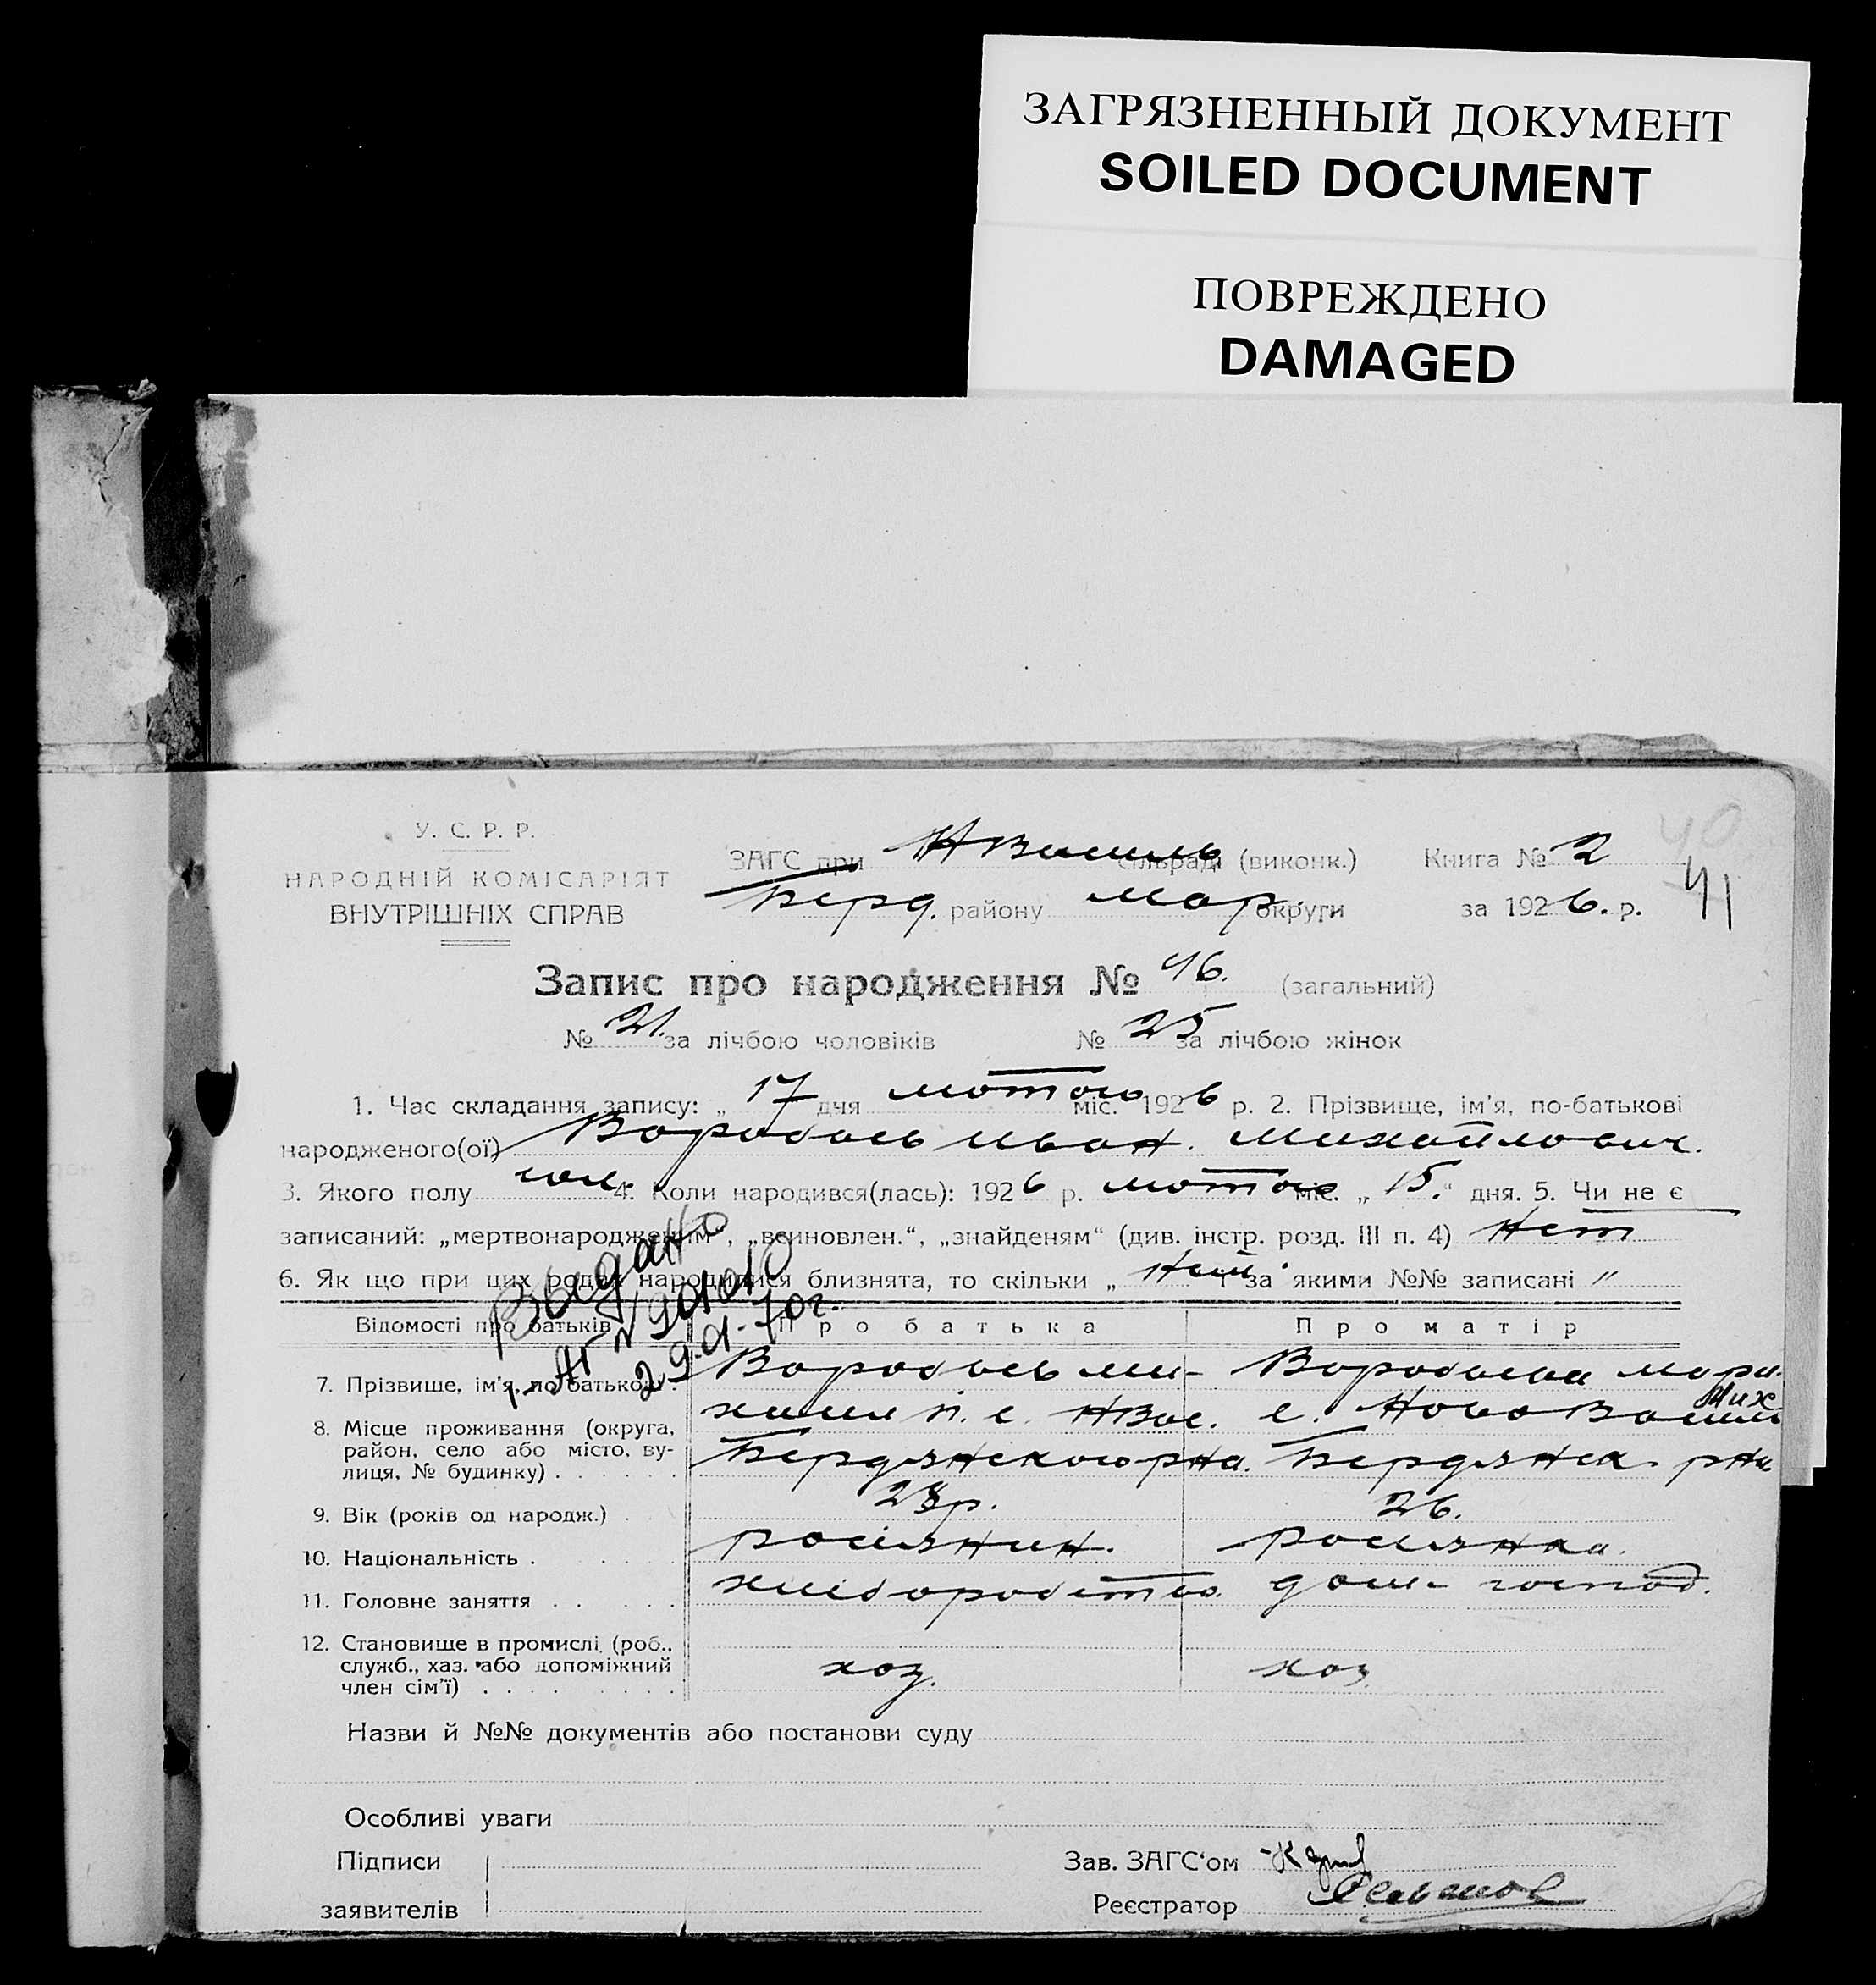 ЗАГРЯЗНЕННЫЙ ДОКУМЕНТ
SOILED DOCUMENT
ПОВРЕЖДЕНО
DAMAGED
40
У. С. Р. Р.
НАРОДНІЙ КОМІСАРІЯТ
ВНУТРІШНІХ СПРАВ
ЗАГС при НВасиль сільради (виконк.) Книга № 2
41
Берд. району Мар. округи за 1926. р.
Запис про народження № 46. (загальний)
№ 21. за лічбою чоловіків № 25 за лічбою жінок
1. Час складання запису: „ 17 дня лютого міс. 1926 р. 2. Прізвище, ім'я, по-батькові
народженого(ої) Воробьев Иван Михайлович.
3. Якого полу чол. 4. Коли народився(лась): 1926 р. лютого міс. „ 15." дня. 5. Чи не є
записаний: „мертвонародженим", „всиновлен.", „знайденям" (див. інстр. розд. III п. 4) Нет
6. Як що при цих родах народилися близнята, то скільки „ Нет за якими №№ записані "
Выдано
29.01.70г.
Відомості про батьків Про батька Про матір
7. Прізвище, ім'я, по батькові. Воробьев Ми- Воробьева Мари.
Мих
8. Місце проживання (округа, хаил П. с. НВас. с. Ново Васил
район, село або місто, ву- Бердянского рна. Бердянск. рна.
лиця, № будинку) . . . . . .
9. Вік (років од народж.) . 28р. 26.
10. Національність . . . . росіянин. росіянка.
11. Головне заняття . . . . . хліборобство дом. господ.
12. Становище в промислі (роб.,
служб., хаз. або допоміжний хоз. хоз
член сім'ї) . . . . . . . . .
Назви й №№ документів або постанови суду
Особливі уваги
Підписи
Зав. ЗАГС'ом
заявителів
Реєстратор